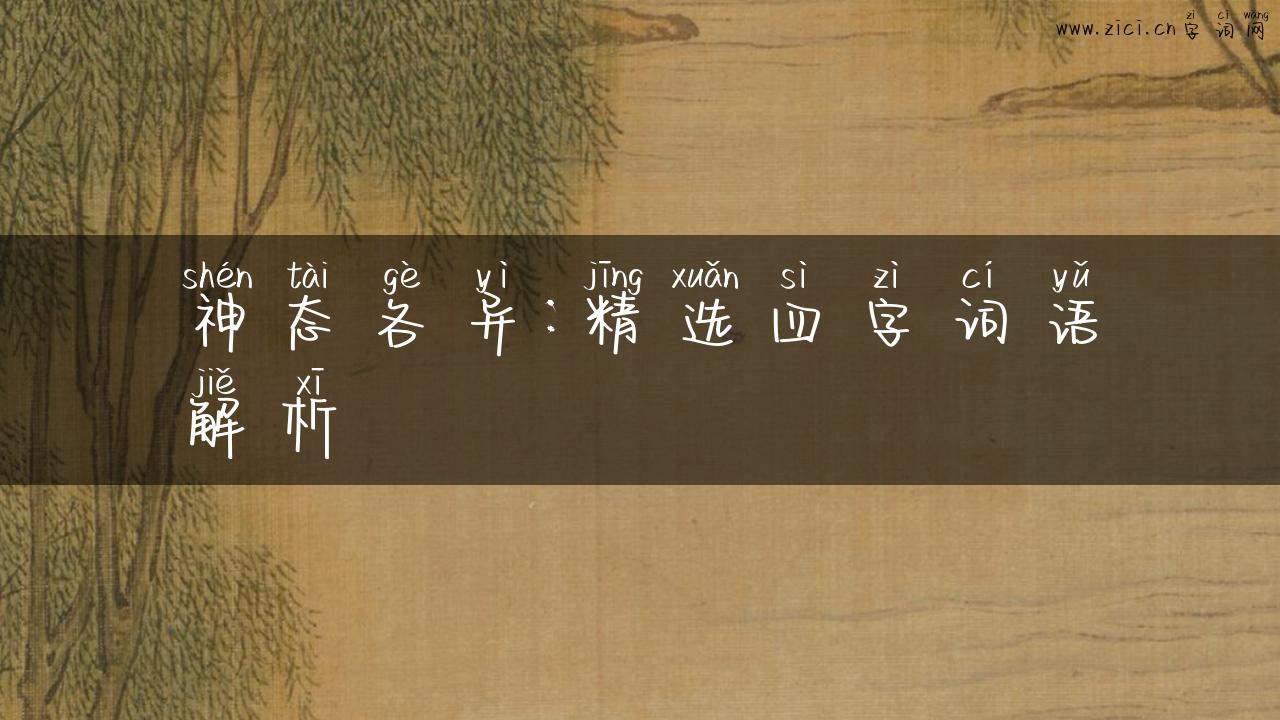 zì cí wǎng
www.zici.cn字词网
shén tài gè yì jīng xuǎn sì zì cí yǔ
神态各异:精选四字词语
jiě xī
解析